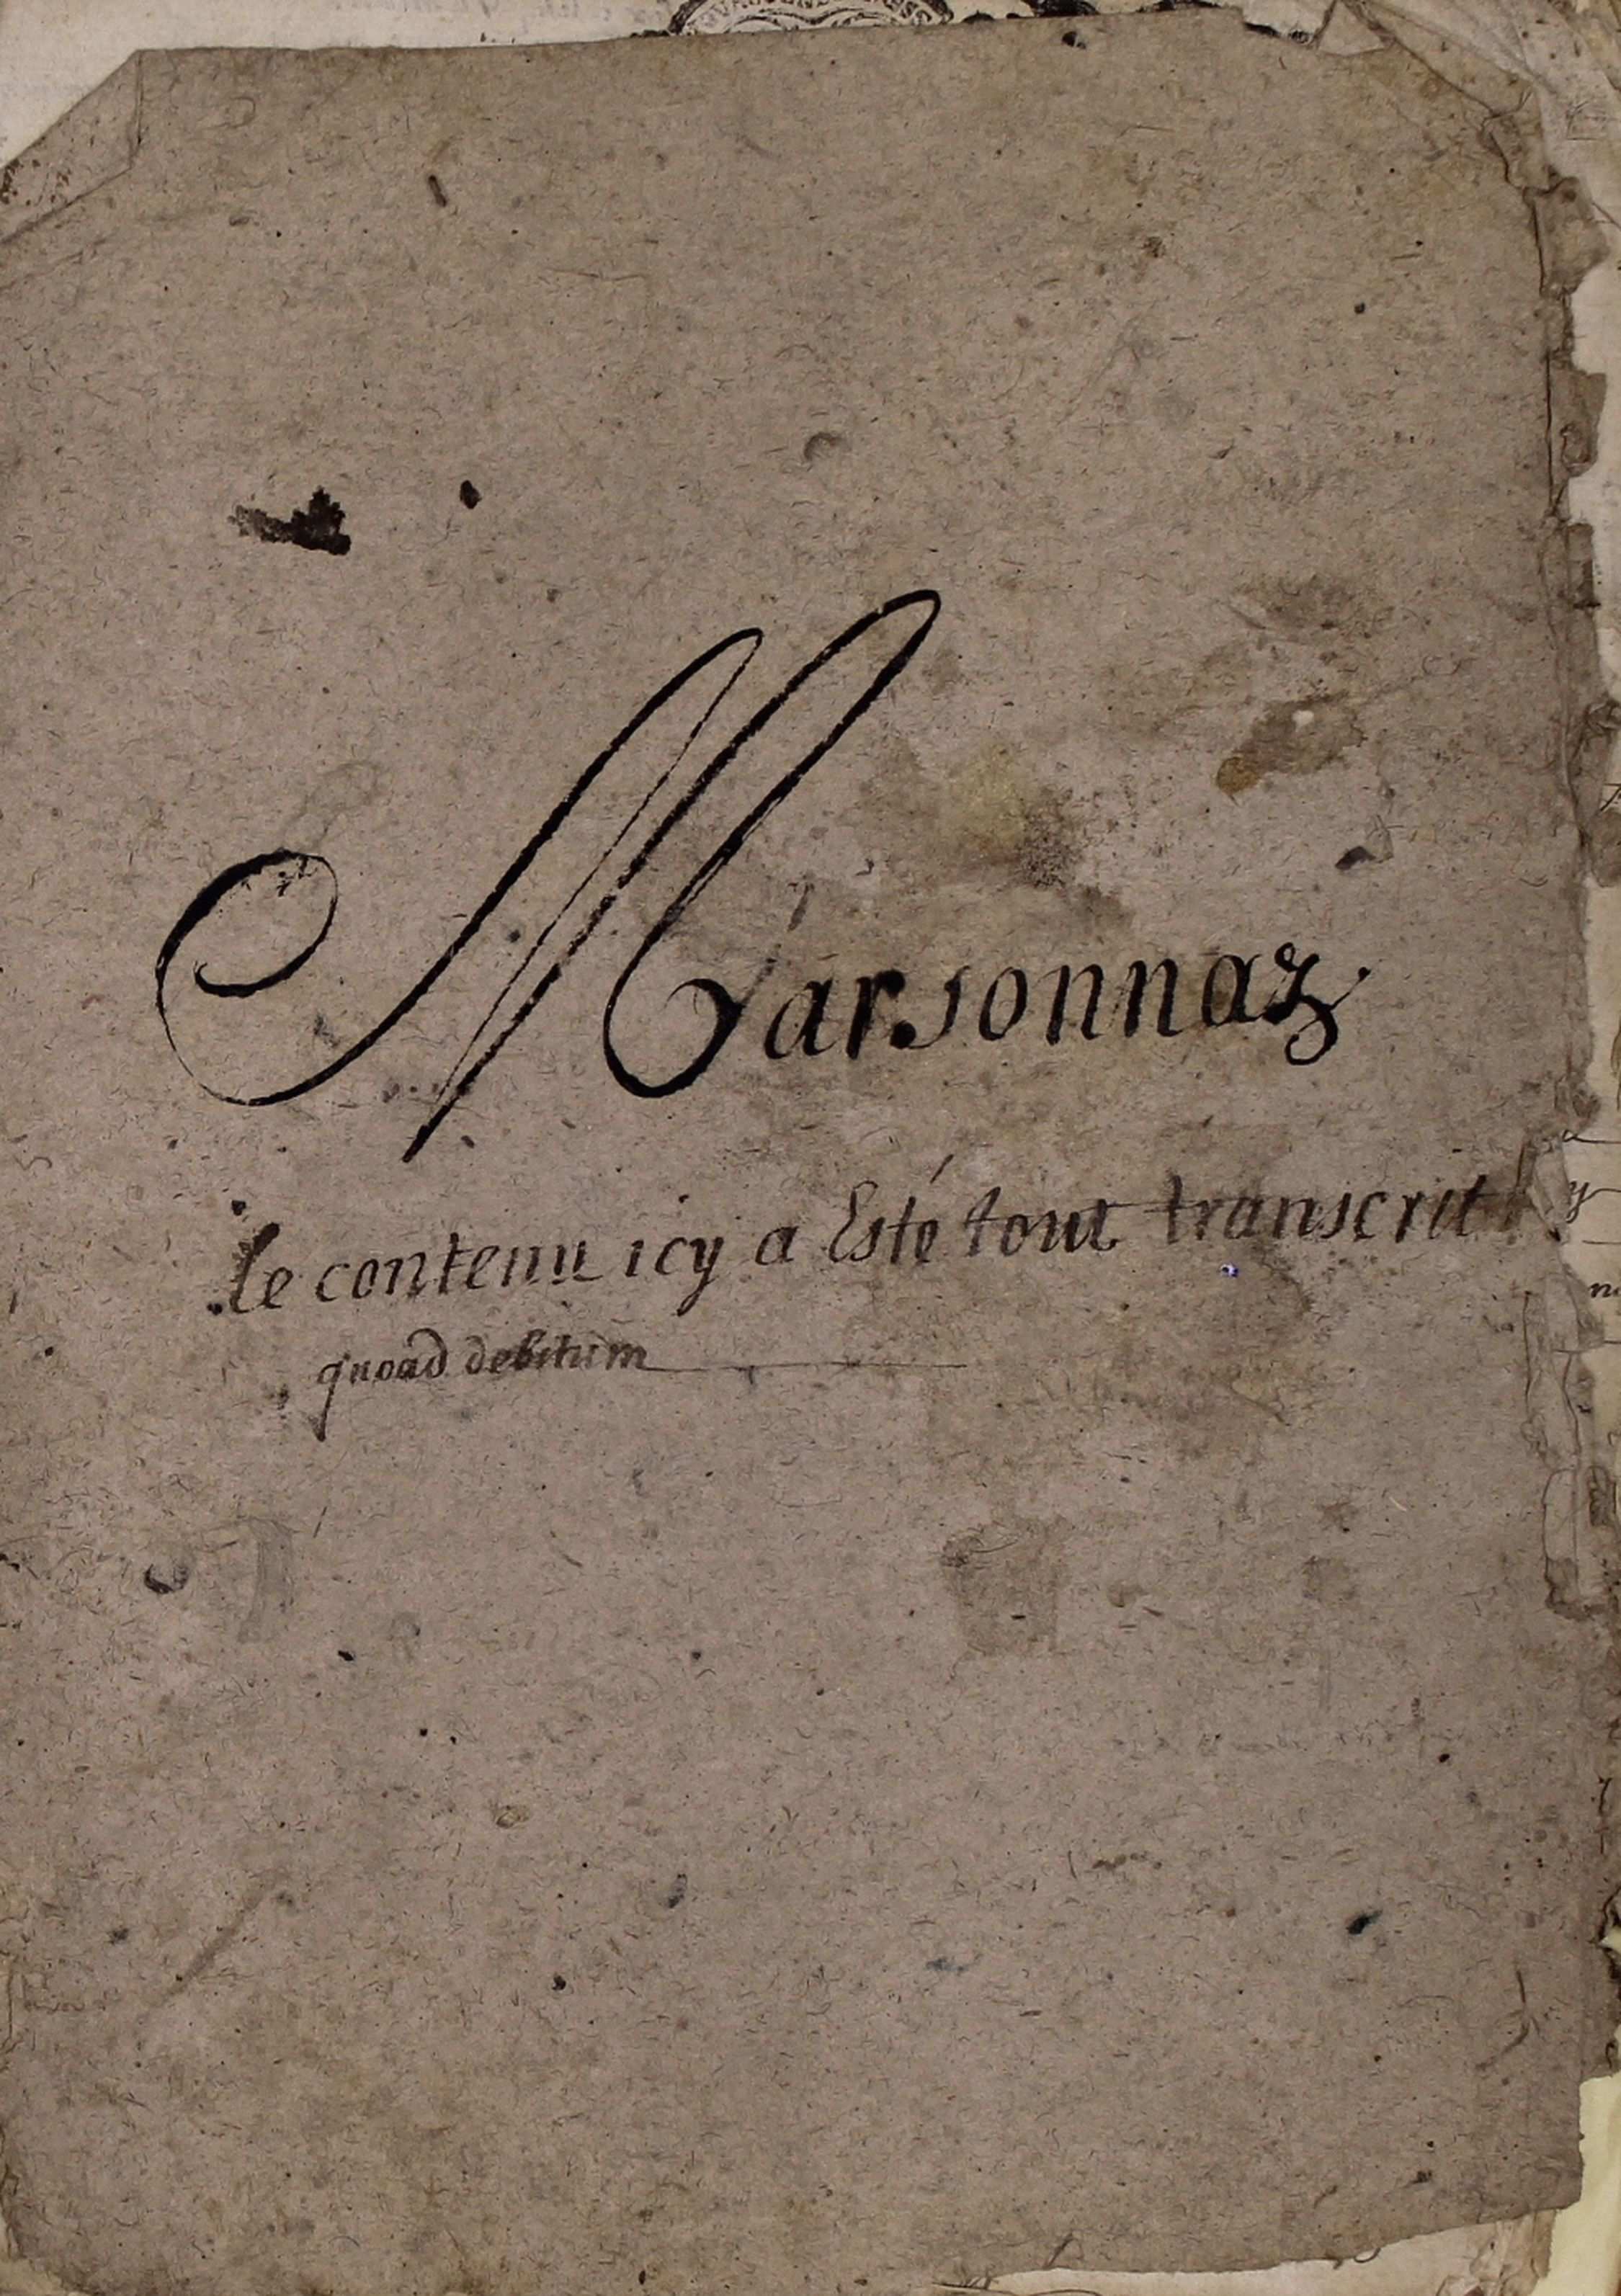 Marsonnaz
le contenu icy a Esté tout transcrit
quoad debitum